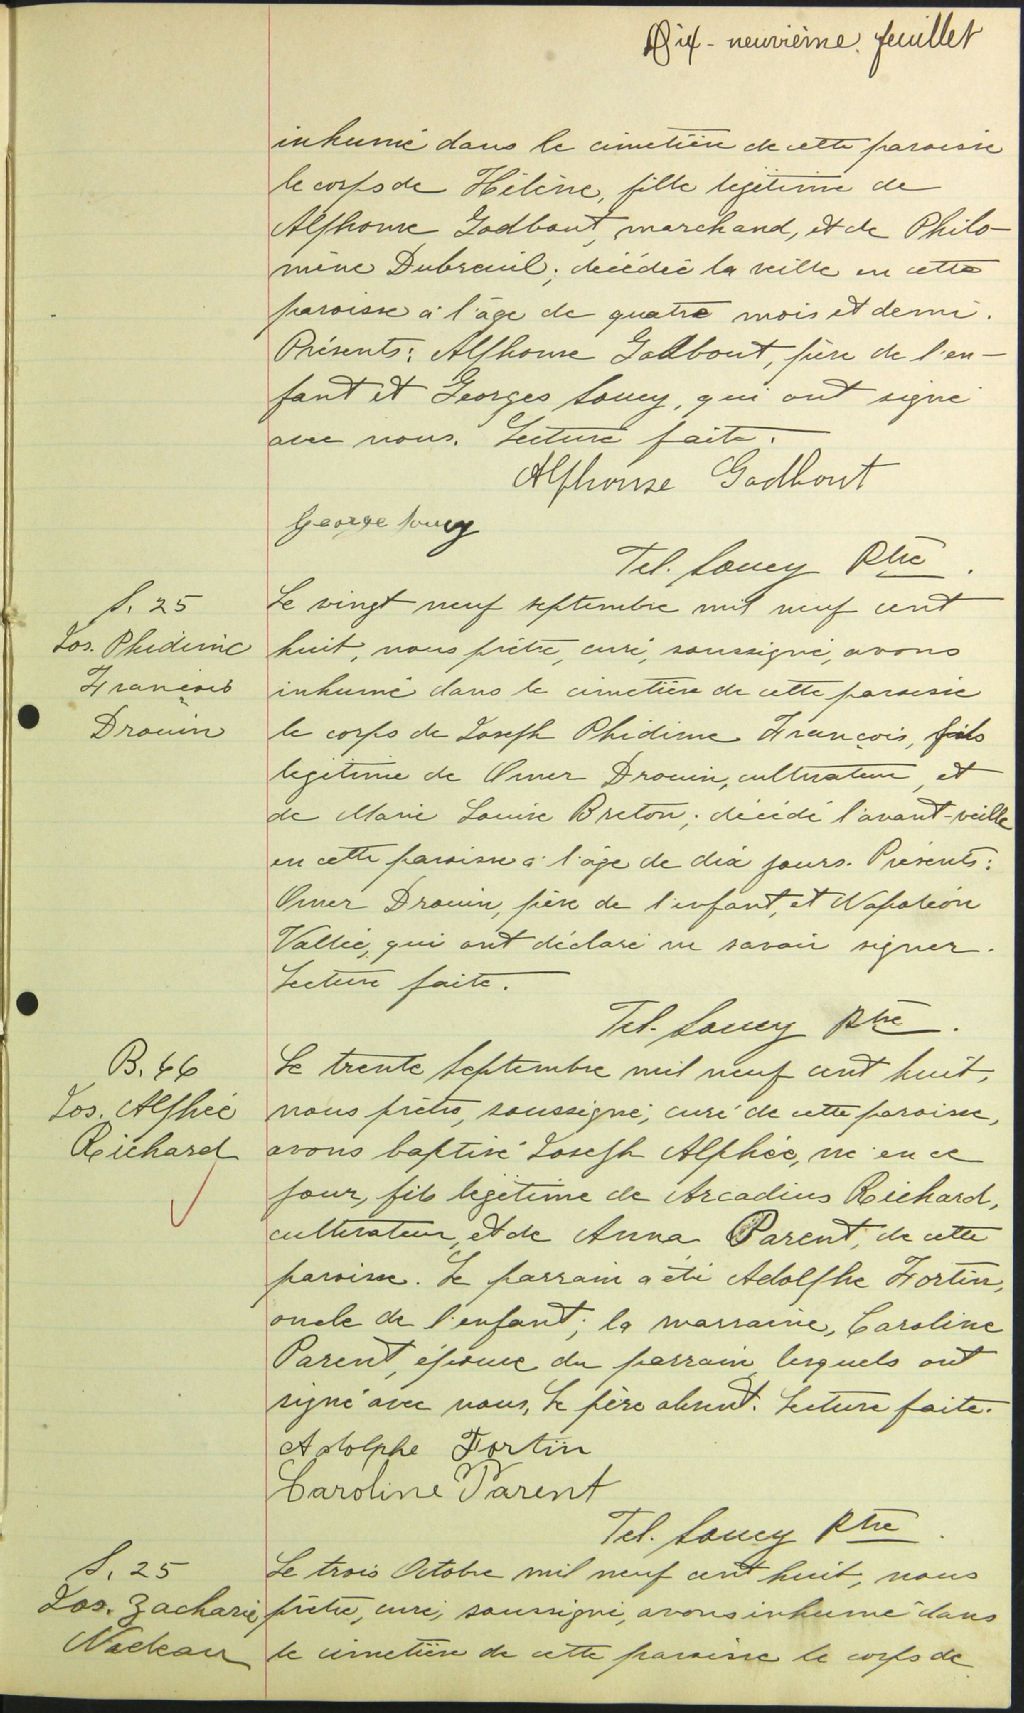 Dix-neuvième feuillet
inhumé dans le cimetière de cette paroisse
le corps de Hélène, fille legitime de
Alphonse Godbout, marchand, et de Philo-
mène Dubreuil; décédée la veille en cette
paroisse à l'âge de quatre mois et demi.
Présents: Alphonse Godbout, père de l'en-
fant et Georges Soucy, qui ont signé
avec nous. Lecture faite.
Alphonse Godbout
George Soucy
Tel. Soucy Ptre.
S. 25
Jos. Phidime
François
Drouin
Le vingt neuf septembre mil neuf cent
huit, nous prêtre, curé, soussigné, avons
inhumé dans le cimetière de cette paroisse
le corps de Joseph Phidime François, fils
legitime de Omer Drouin, cultivateur, et
de Marie Louise Breton; décédé l'avant-veille
en cette paroisse à l'âge de dix jours. Présents:
Omer Drouin, père de l'enfant, et Napoléon
Vallée, qui ont déclaré ne savoir signer.
Lecture faite.
Tel. Soucy Ptre.
B. 66
Jos. Alphée
Richard
Le trente Septembre mil neuf cent huit,
nous prêtre, soussigné, curé de cette paroisse,
avons baptisé Joseph Alphée, né en ce
jour, fils legitime de Arcadius Richard,
cultivateur, et de Anna Parent, de cette
paroisse. Le parrain a été Adolphe Fortin,
oncle de l'enfant; la marraine, Caroline
Parent, épouse du parrain lesquels ont
signé avec nous, le père absent. Lecture faite.
Adolphe Fortin
Caroline Parent
Tel. Soucy Ptre.
S. 25
Jos. Zacharie
Nadeau
Le trois Octobre mil neuf cent huit, nous
prêtre, curé, soussigné, avons inhumé dans
le cimetière de cette paroisse le corps de